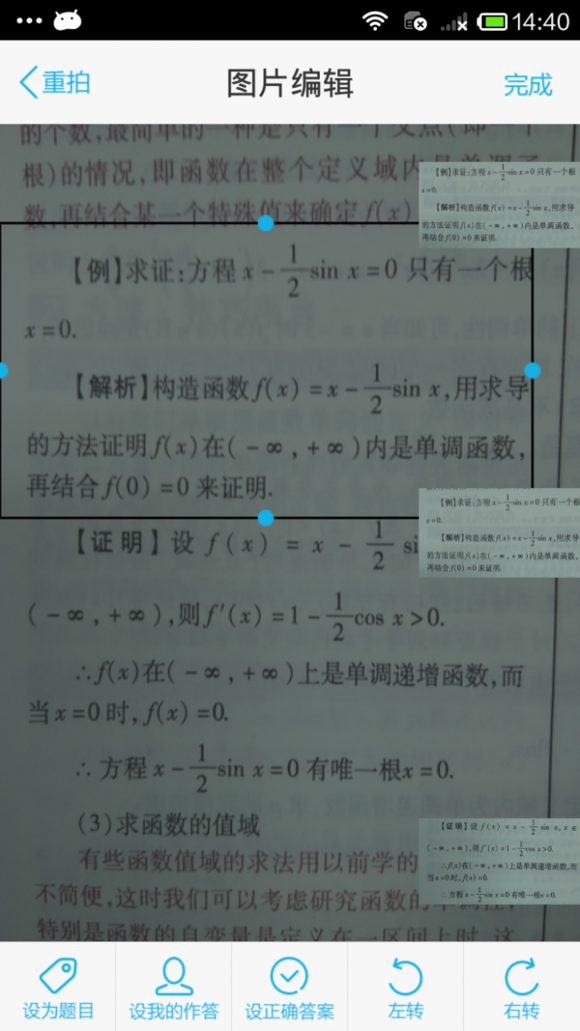 14:40
重拍
图片编辑
完成
的个数,最简单的一种是只有一个交点(即一个
根)的情况,即函数在整个定义域内是单调函
数,再结合某一个特殊值来确定f(x)
【例】求证:方程 x - 1/2 sin x = 0 只有一个根
x = 0.
【解析】构造函数 f(x) = x - 1/2 sin x,用求导
的方法证明 f(x) 在( - ∞ , + ∞ )内是单调函数,
再结合 f(0) = 0 来证明.
【例】求证:方程 x - 1/2 sin x = 0 只有一个根
x = 0.
【解析】构造函数 f(x) = x - 1/2 sin x,用求导
的方法证明 f(x) 在( - ∞ , + ∞ )内是单调函数,
再结合 f(0) = 0 来证明.
【例】求证:方程 x - 1/2 sin x = 0 只有一个根
x = 0.
【解析】构造函数 f(x) = x - 1/2 sin x,用求导
的方法证明 f(x) 在( - ∞ , + ∞ )内是单调函数,
再结合 f(0) = 0 来证明.
【证明】设 f(x) = x - 1/2 si
( - ∞ , + ∞ ),则 f'(x) = 1 - 1/2 cos x > 0.
∴ f(x) 在( - ∞ , + ∞ )上是单调递增函数,而
当 x = 0 时, f(x) = 0.
∴ 方程 x - 1/2 sin x = 0 有唯一根 x = 0.
【证明】设 f(x) = x - 1/2 sin x, x ∈
( - ∞ , + ∞ ),则 f'(x) = 1 - 1/2 cos x > 0.
∴ f(x) 在( - ∞ , + ∞ )上是单调递增函数,而
当 x = 0 时, f(x) = 0.
∴ 方程 x - 1/2 sin x = 0 有唯一根 x = 0.
(3)求函数的值域
有些函数值域的求法用以前学的
不简便,这时我们可以考虑研究函数的单调性,
特别是函数的自变量是定义在一区间上时,这
设为题目
设我的作答
设正确答案
左转
右转